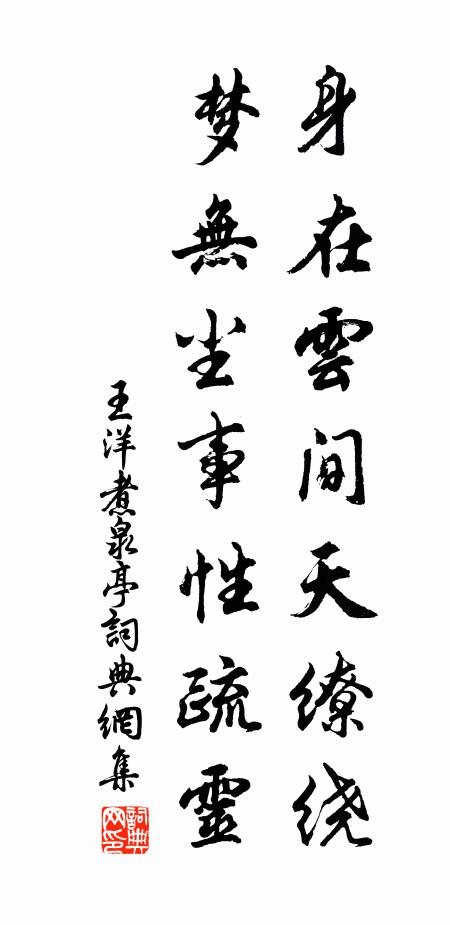 身在雲间天缭绕
梦無尘事性疏靈
王洋煮泉亭詞典網集
詞典网印